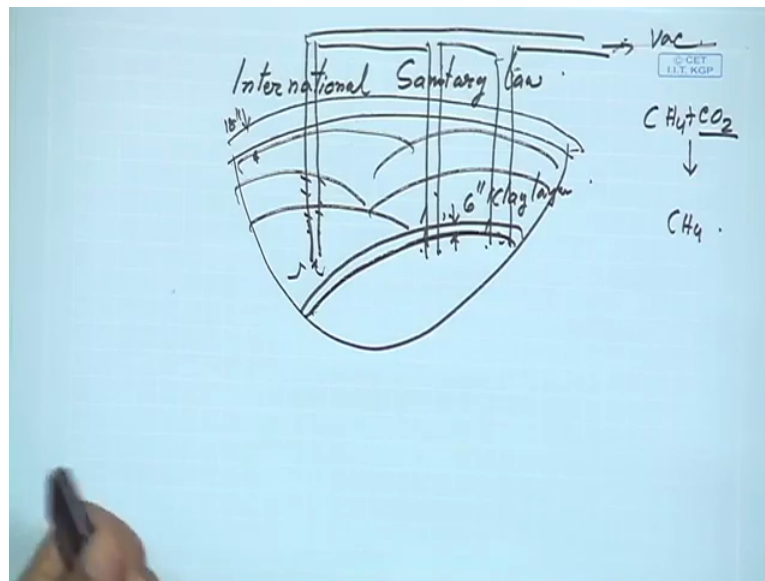 Vac.
© CET
I.I.T. KGP
International Sanitary Law.
18"
CH4 + CO2
6" Clay layer.
CH4.